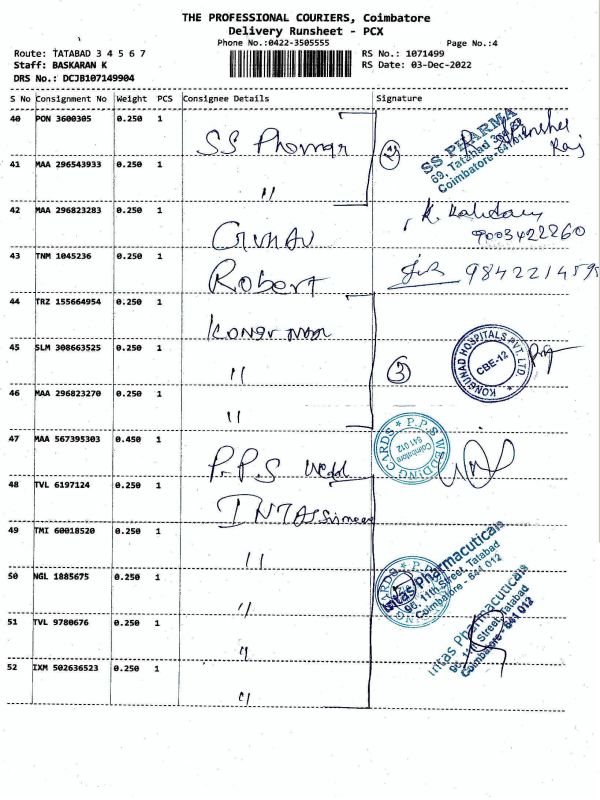 THE PROFESSIONAL COURIERS, Coimbatore
Delivery Runsheet - PCX
Phone No.:0422-3505555
Page No.:4
Route: TATABAD 3 4 5 6 7
RS No.: 1071499
Staff: BASKARAN K
RS Date: 03-Dec-2022
DRS No.: DCJB107149904
S No Consignment No Weight PCS Consignee Details Signature
40 PON 3600305 0.250 1
SS Pharma
SS PHARMA
69, Tatabad
Coimbatore-641012
2
41 MAA 296543933 0.250 1
"
42 MAA 296823283 0.250 1
9003422260
43 TNM 1045236 0.250 1
Robert
44 TRZ 155664954 0.250 1
45 SLM 308663525 0.250 1
"
3
KONGUNAD HOSPITALS PVT. LTD.
CBE-12
46 MAA 296823270 0.250 1
"
47 MAA 567395303 0.450 1
P.P.S
P.P.S WEDDING CARDS
Coimbatore
641 012
48 TVL 6197124 0.250 1
49 TMI 60018520 0.250 1
"
50 NGL 1885675 0.250 1
"
Intas Pharmacuticals
96, 11th Street, Tatabad
Coimbatore - 641 012
51 TVL 9780676 0.250 1
"
Intas Pharmacuticals
96, 11th Street, Tatabad
Coimbatore - 641 012
52 IXM 502636523 0.250 1
"